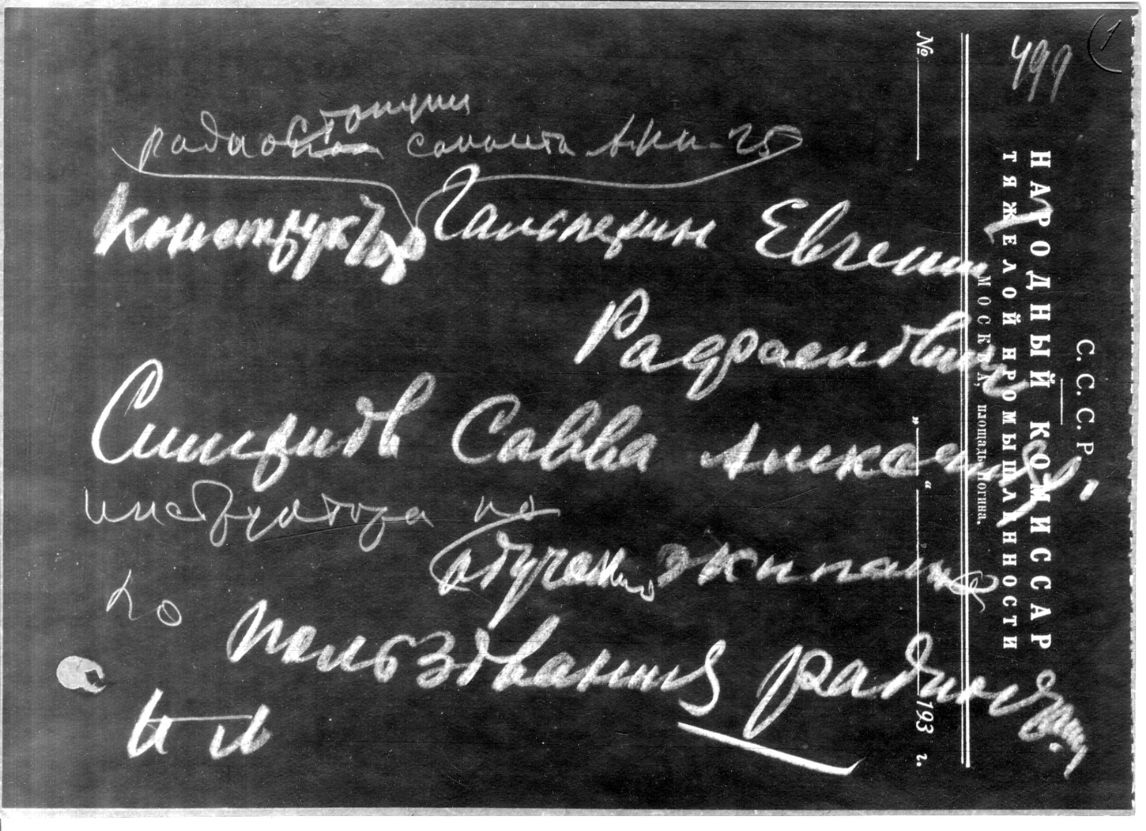 1
499
С. С. С. Р.
НАРОДНЫЙ КОМИССАР
ТЯЖЕЛОЙ ПРОМЫШЛЕННОСТИ
МОСКВА, площадь Ногина.
№
" " 193 г.
радиостанции
самолета АНТ-25
Конструктор Гальперин Евгений
Рафаелович
Смирнов Савва Алексеев.
инструктора по
обучению экипажа
по
пользования